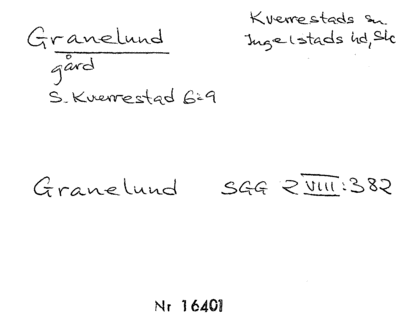 Granelund
gård
S. Kverrestad 6:9
Kverrestads sn.
Ingelstads hd, Sk
Granelund SGG 2 VIII:382
Nr 16401